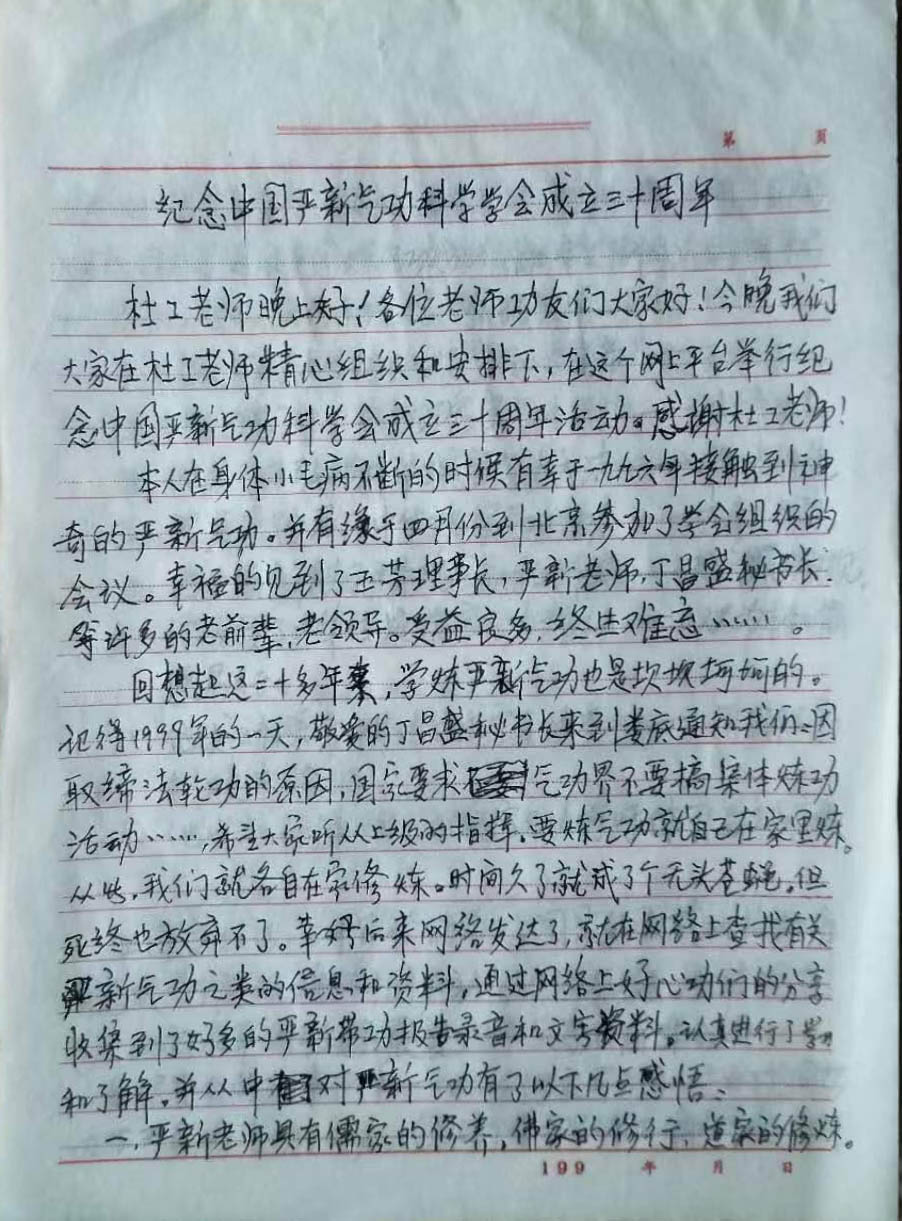 第 页
纪念中国严新气功科学学会成立三十周年
杜工老师晚上好！各位老师功友们大家好！今晚我们
大家在杜工老师精心组织和安排下，在这个网上平台举行纪
念中国严新气功科学会成立三十周年活动。感谢杜工老师！
本人在身体小毛病不断的时候有幸于一九九六年接触到神
奇的严新气功。并有缘于四月份到北京参加了学会组织的
会议。幸福的见到了王芳理事长，严新老师，丁昌盛秘书长
等许多的老前辈，老领导。受益良多，终生难忘……。
回想起这二十多年来，学炼严新气功也是坎坎坷坷的。
记得1999年的一天，敬爱的丁昌盛秘书长来到娄底通知我们：因
取缔法轮功的原因，国家要求气功界不要搞集体炼功
活动……，希望大家听从上级的指挥。要炼气功就自己在家里炼。
从此，我们就各自在家修炼。时间久了就成了个无头苍蝇。但
死终也放弃不了。幸好后来网络发达了，就在网络上查找有关
严新气功之类的信息和资料，通过网络上好心功们的分享
收集到了好多的严新带功报告录音和文字资料。认真进行了学习
和了解。并从中对严新气功有了以下几点感悟：
一，严新老师具有儒家的修养，佛家的修行，道家的修炼。
199 年 月 日